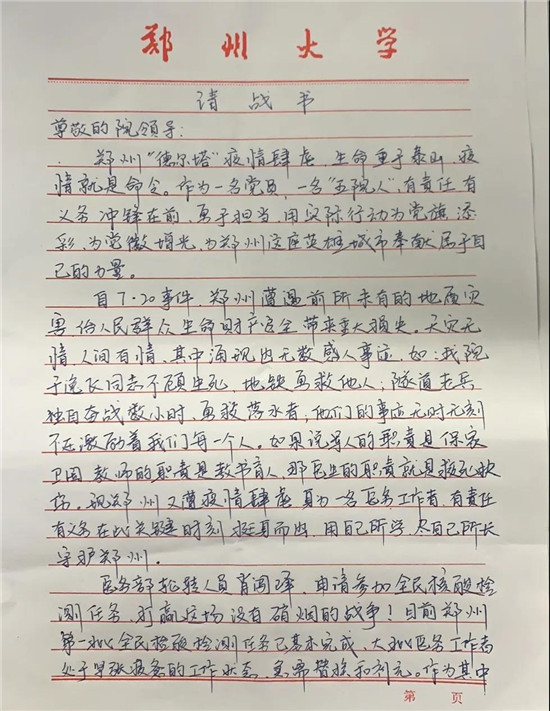 郑州大学
请战书
尊敬的院领导：
郑州“德尔塔”疫情肆虐，生命重于泰山，疫
情就是命令。作为一名党员，一名“五院人”，有责任有
义务冲锋在前，勇于担当，用实际行动为党旗添
彩，为党徽增光，为郑州这座英雄城市奉献属于自
己的力量。
自7·20事件，郑州遭遇前所未有的地质灾
害，给人民群众生命财产安全带来重大损失。天灾无
情，人间有情，其中涌现出无数感人事迹，如：我院
于逸飞同志不顾生死，地铁勇救他人；隧道老兵
独自奋战数小时，勇救落水者；他们的事迹无时无刻
不在激励着我们每一个人。如果说军人的职责是保家
卫国，教师的职责是教书育人，那医生的职责就是救死扶
伤。现郑州又遭疫情肆虐，身为一名医务工作者，有责任
有义务在此关键时刻挺身而出，用自己所学，尽自己所长
守护郑州。
医务部轮转人员肖闯，申请参加全民核酸检
测任务，打赢这场没有硝烟的战争！目前郑州
第一次全民核酸检测任务已基本完成，大批医务工作者
处于紧张疲惫的工作状态，急需替换和补充。作为其中
第 页